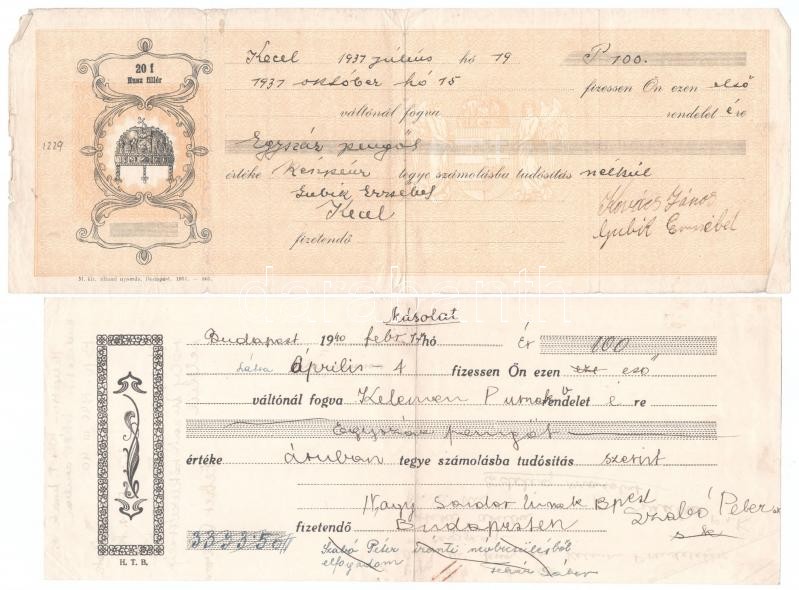 Kecel 1937 július hó 19 P 100.
20 f
Husz fillér
1937 október hó 15 fizessen Ön ezen első
váltónál fogva rendelet é re
1229
Egyszáz pengőt
értéke Készpénz tegye számolásba tudósítás nélkül
Gubik Erzsébet
Kecel
Kovács János
Gubik Erzsébet
fizetendő
M. kir. állami nyomda, Budapest, 1931.
Másolat
Budapest, 1940 febr. hó Ér 100
Április - 4 fizessen Ön ezen eső
váltónál fogva Kelemen rendelet é re
Egyszáz pengőt
értéke áruban tegye számolásba tudósítás szerint
Nagy Sándor Bpest
fizetendő Budapesten
Szabó Péter
333350
Szabó Péter
elfogadom
H. T. B.